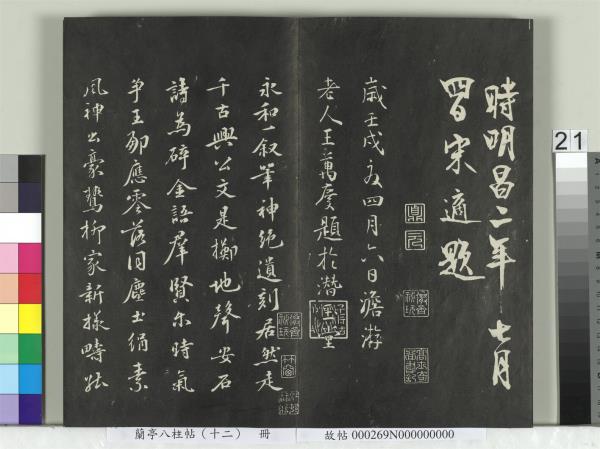 時明昌二年七月
習宋適題
歲壬戌夏四月六日澹游
老人王萬慶題於潛
永和一敘筆神絕遺刻居然走
千古興公文是擲地聲安石
詩為碎金語群賢乐時氣
爭王郎應零落同塵土絹素
風神出豪
柳家新樣
蘭亭八柱帖(十二) 冊
故帖 000269N000000000
21